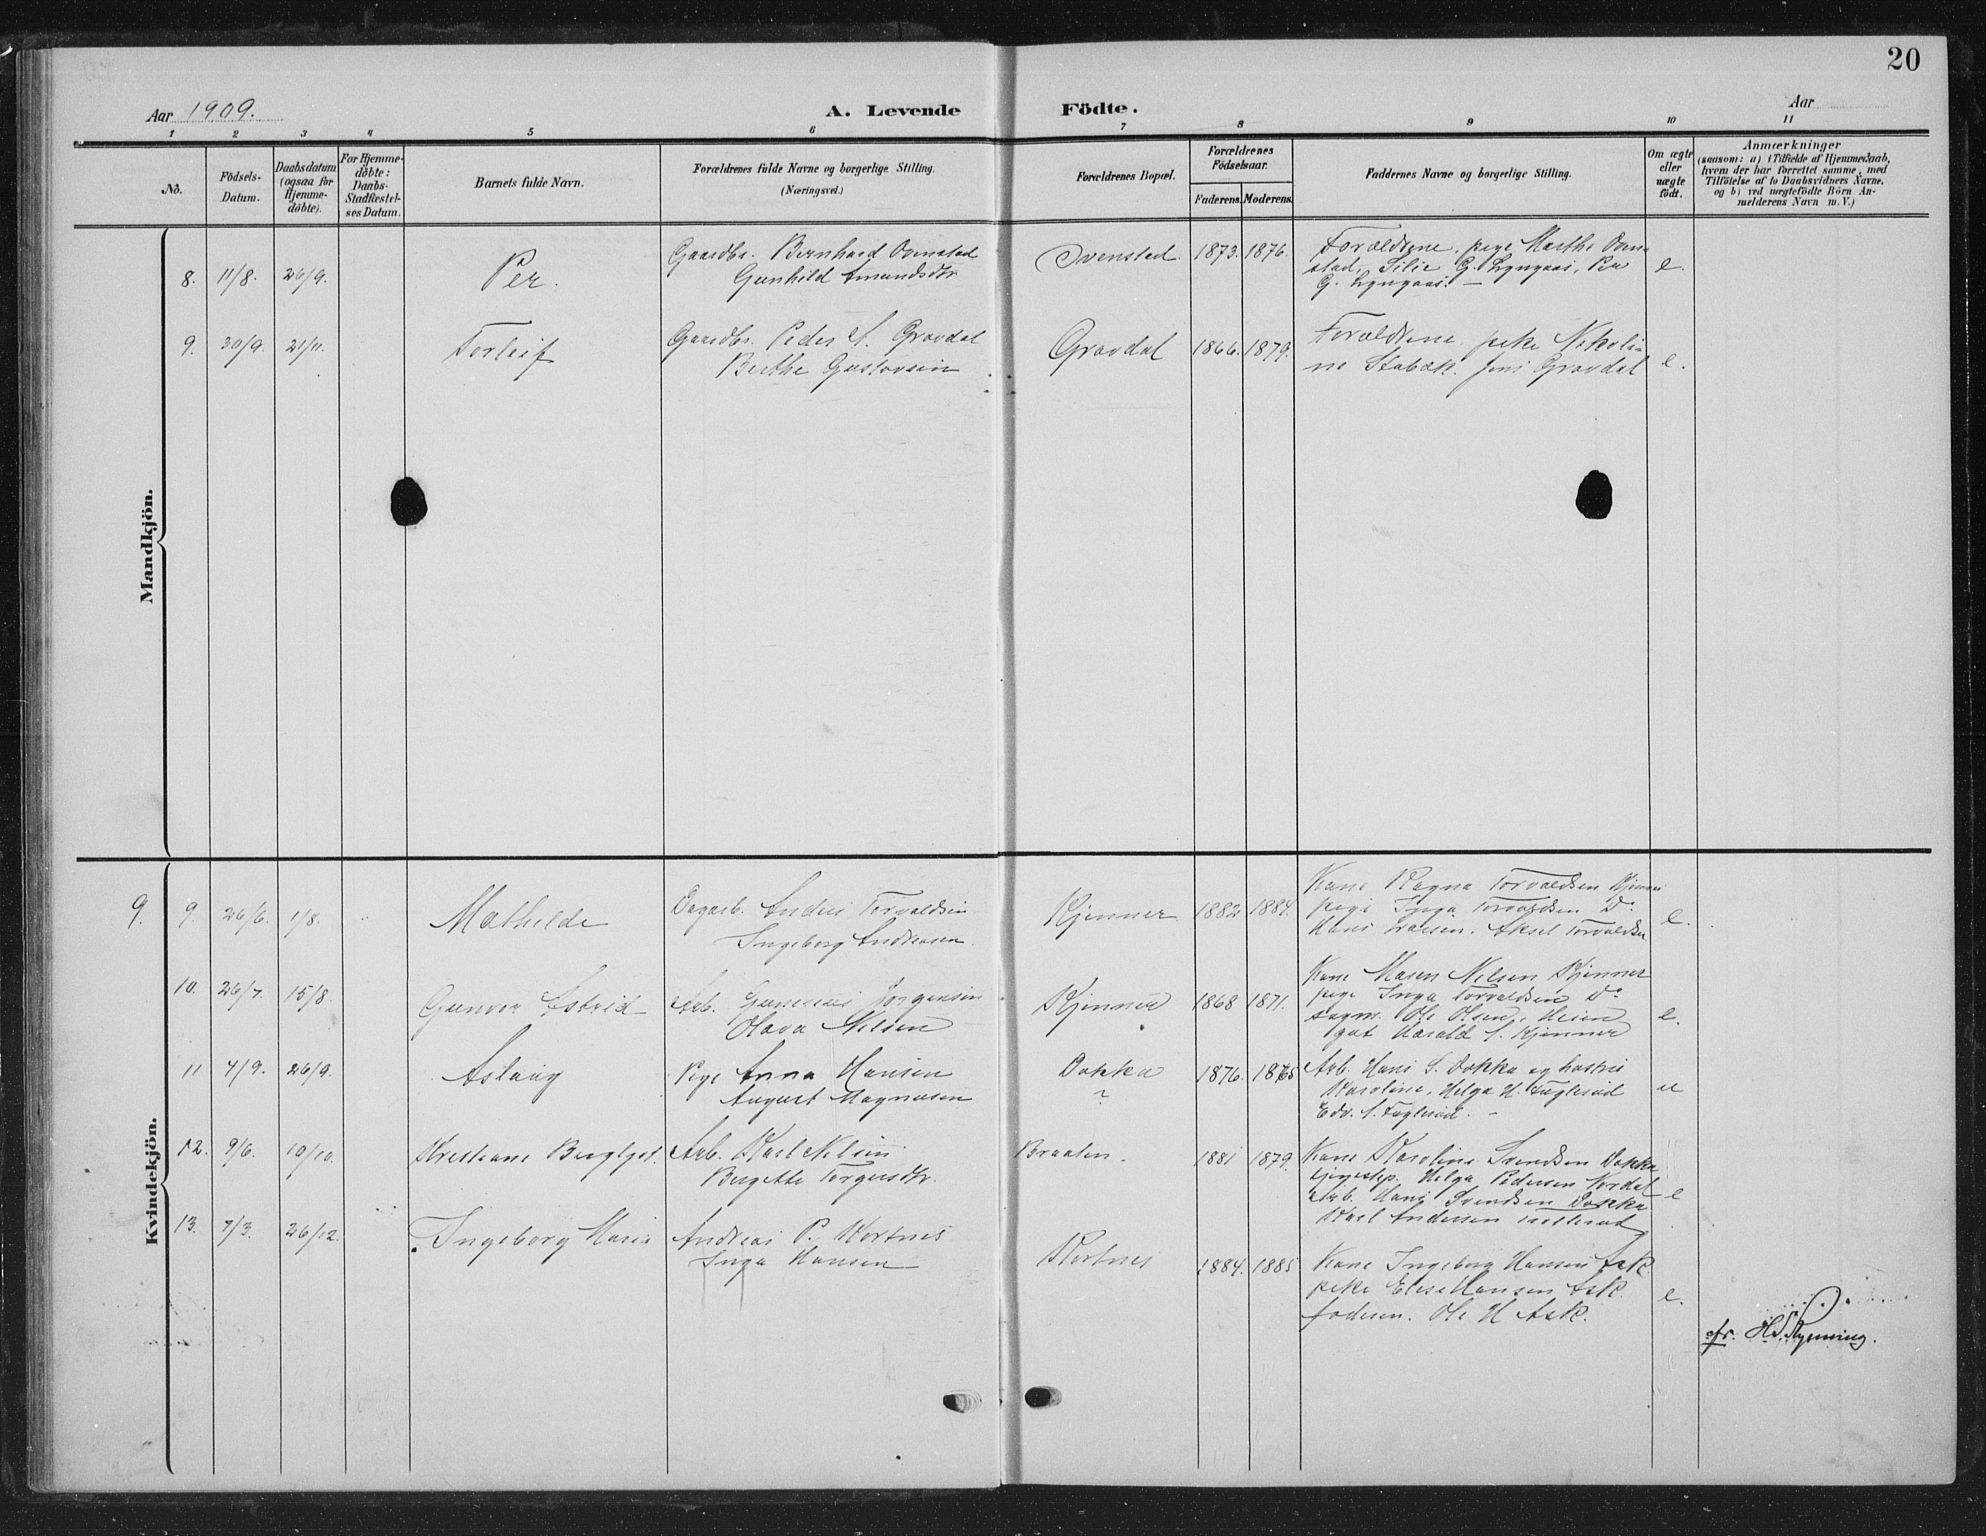 20
Aar 1909.
A. Levende
Födte.
Aar
1 2 3 4 5 6 7 8 9 10 11
No.
Födsels-
Datum.
Daabsdatum
(ogsaa for
Hjemme-
döbte).
For Hjemme-
döbte:
Daabs-
Stadfæstel-
ses Datum.
Barnets fulde Navn.
Forældrenes fulde Navne og borgerlige Stilling.
(Næringsvei.)
Forældrenes Bopæl.
Forældrenes
Födselsaar.
Faderens. Moderens.
Faddernes Navne og borgerlige Stilling.
Om ægte
eller
uægte
födt.
Anmærkninger
(saasom: a) i Tilfælde af Hjemmedaab,
hvem der har forrettet samme, med
Tilföielse af to Daabsvidners Navne,
og b) ved uægtefödte Börn An-
melderens Navn m. V.)
Mandkjön.
8. 11/8. 26/9. Per.
Gaardbr. Bernhard Ovenstad
Gunhild Amundsdtr
Ovenstad. 1873. 1876.
Forældrene, pige Marthe Oven-
stad, Silie G. Lyngaas, Per
G. Lyngaas. —
e.
9. 30/9. 21/11. Torleif
Gaardbr. Peder S. Gravdal
Berthe Gustavsen
Gravdal 1866. 1879.
Forældrene, pike Nikoli-
ne Stabæk. Jens Gravdal
e.
Kvindekjön.
9. 9. 26/6. 1/8. Mathilde
Dagarb. Anders Torvaldsen
Ingeborg Andreasen.
Kjenner 1882 1884.
Kone Ragna Torvaldsen Kjenner
pige Inga Torvaldsen Do
Hans Torvaldsen
e.
10. 26/7. 15/8. Gunvor Astrid
Arb. Jørgensen
Olava Nilsen
Kjenner 1868 1871.
Kone Maren Nilsen Kjenner
pige Inga Torvaldsen Do
sagm. Ole Olsen, Heien
gut Harald S. Kjenner
e.
11 4/9. 26/9. Aslaug
Pige Anna Hansen
August Magnusen
Dokka
1876. 1875
Arb. Hans S. Dokka og hustru
Karoline, Helga H. Fuglerud
Edv. S. Fuglerud. -
u
12. 9/6. 10/10. Kristiane Bergljot.
Arb. Karl Nilsen
Bergitte Torgersdtr.
Braaten. 1881 1879.
Kone Karoline Svendsen Dokka
Helga Pedersen
Arb. Hans Svendsen Dokka
Karl Andersen
e
13. 7/3. 26/12. Ingeborg Marie
Andreas P. Kortnes
Inga Hansen
Kortnes 1884. 1885
Kone Ingeborg Hansen Ask
pike Elise Hansen Ask
faderen. Ole H Ask.
e.